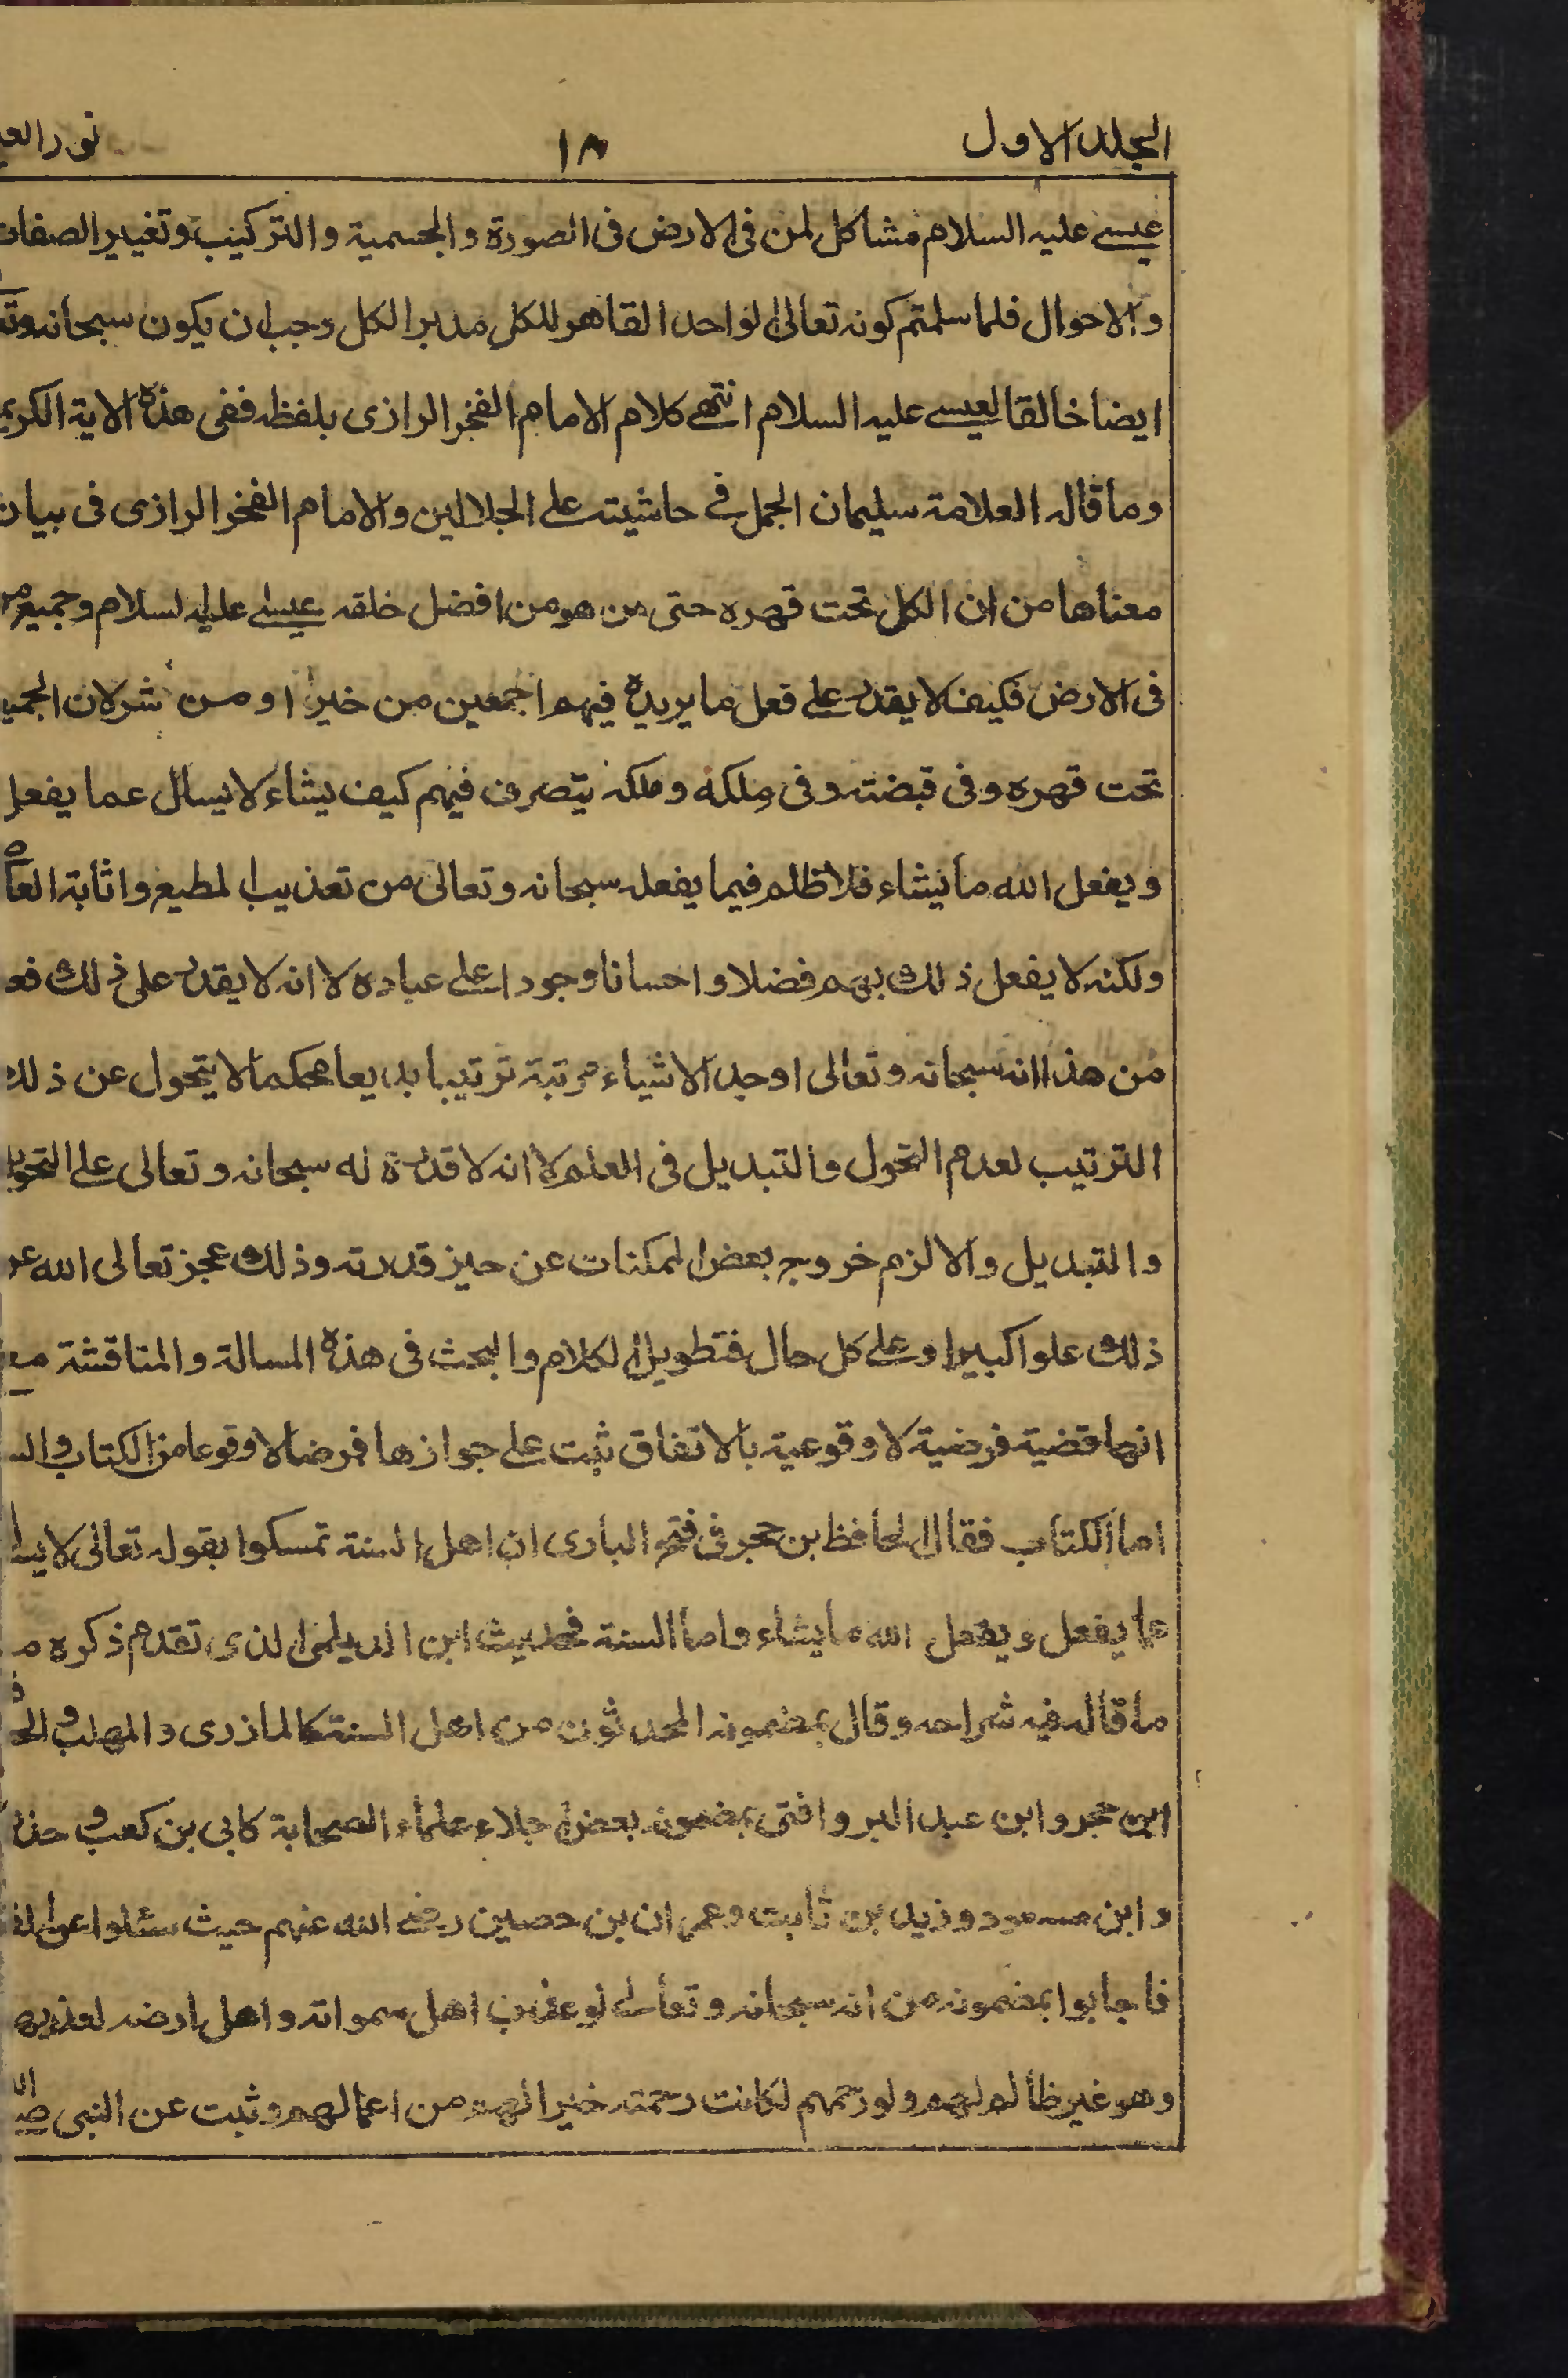 المجلد الاول ١٨ نور
عيسى عليه السلام مشاكل لمن فى الارض فى الصورة والجسمية والتركيب وتغيير الصفات
والاحوال فلما سلمتم كونه تعالى الواحد القاهر للكل مدبر الكل وجب ان يكون سبحانه
ايضا خالقا لعيسى عليه السلام انتهى كلام الامام الفخر الرازى بلفظه ففى هذه الاية
وما قاله العلامة سليمان الجمل فى حاشيته على الجلالين والامام الفخر الرازى فى بيان
معناها من ان الكل تحت قهره حتى من هو من افضل خلقه عيسى عليه السلام وجميع
فى الارض فكيف لا يقدر على فعل ما يريده فيهم اجمعين من خير او من شر لان
تحت قهره وفى قبضته وفى ملكه وملكه يتصرف فيهم كيف يشاء لا يسال عما يفعل
ويفعل الله ما يشاء فلا ظلم فيما يفعله سبحانه وتعالى من تعذيب المطيع واثابة
ولكنه لا يفعل ذلك بهم فضلا واحسانا وجودا على عباده لا انه لا يقدر على ذلك
من هذا انه سبحانه وتعالى اوجد الاشياء مرتبة ترتيبا بديعا محكما لا يتحول عن ذلك
الترتيب لعدم التحول والتبديل فى العلم لا انه لا قدرة له سبحانه وتعالى على
والتبديل والا لزم خروج بعض الممكنات عن حيز قدرته وذلك عجز تعالى الله
ذلك علوا كبيرا وعلى كل حال فتطويل الكلام والبحث فى هذه المسالة والمناقشة مع
انها قضية فرضية لا وقوعية بالاتفاق ثبت على جوازها فرضا لا وقوعا من الكتاب
اما الكتاب فقال الحافظ بن حجر فى فتح البارى ان اهل السنة تمسكوا بقوله تعالى لا
عما يفعل ويفعل الله ما يشاء واما السنة فحديث ابن الديلمى الذى تقدم ذكره
ما قاله فيه شراحه وقال بمضمونه المحدثون من اهل السنة كالمازرى والمهلب
ابن حجر وابن عبد البر وافتى بمضمونه بعض اجلاء علماء الصحابة كابى بن كعب و
وابن مسعود وزيد بن ثابت وعمران بن حصين رضى الله عنهم حيث سئلوا
فاجابوا بمضمونه من انه سبحانه وتعالى لو عذب اهل سمواته واهل ارضه لعذبهم
وهو غير ظالم لهم ولو رحمهم لكانت رحمته خيرا لهم من اعمالهم وثبت عن النبى